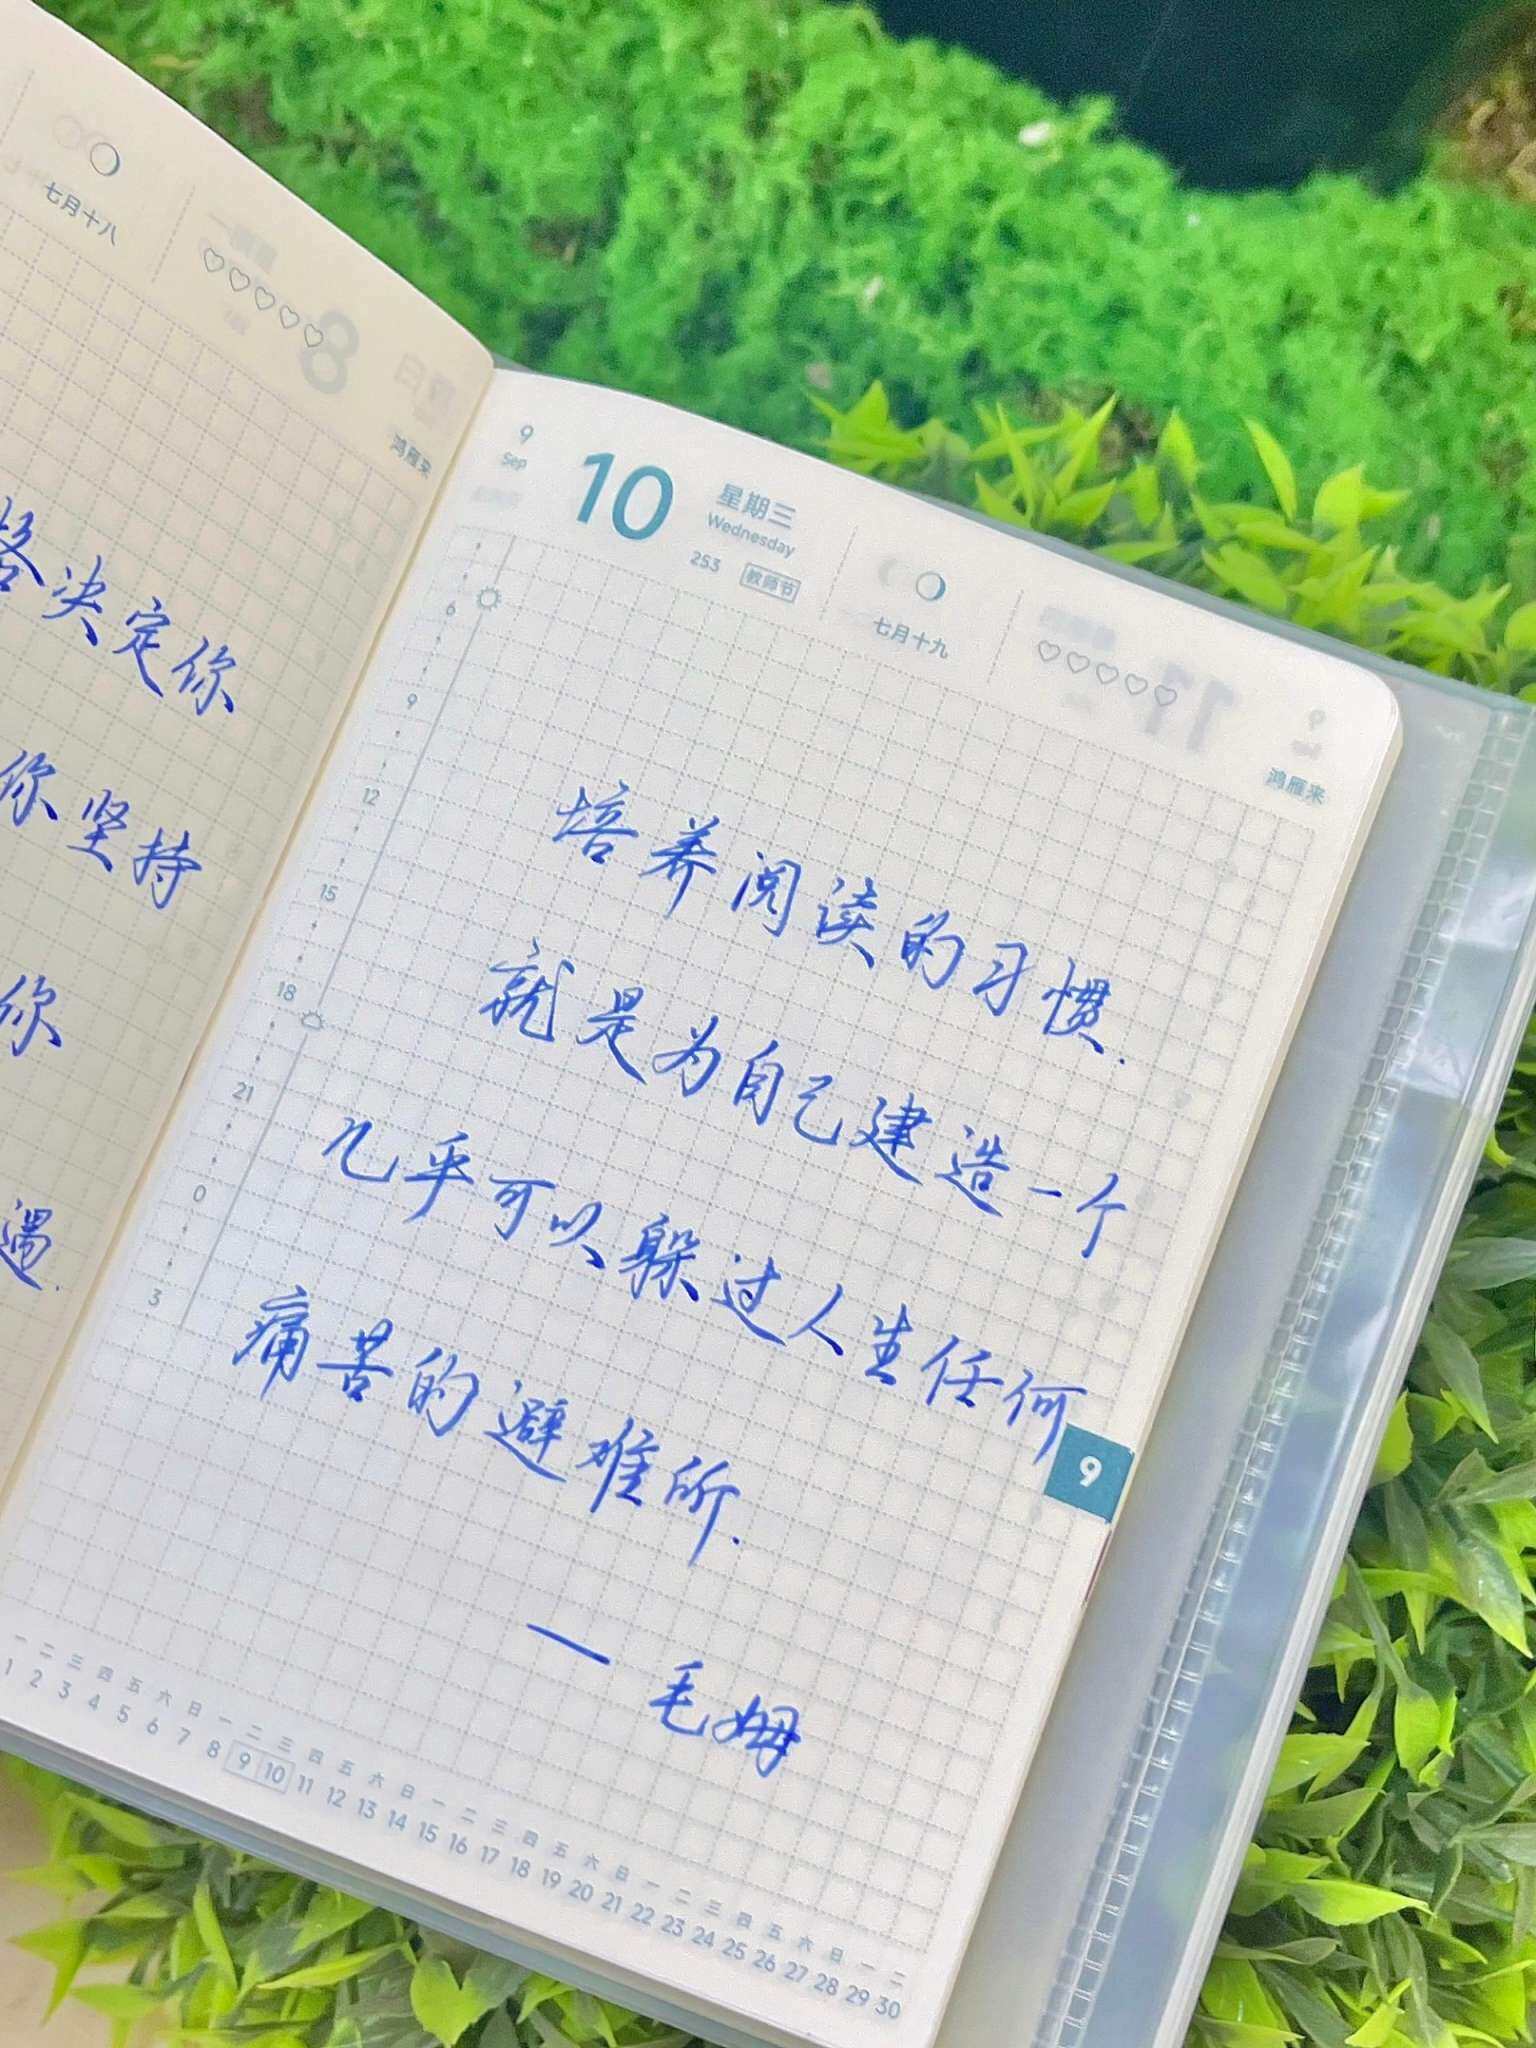 七月十八
鸿雁来
格决定你
你坚持
你
遇.
9
Sep
10
星期三
Wednesday
253
教师节
七月十九
鸿雁来
6
9
12
15
18
21
0
3
培养阅读的习惯.
就是为自己建造一个
几乎可以躲过人生任何
痛苦的避难所.
— 毛姆
9
一 二 三 四 五 六 日 一 二 三 四 五 六 日 一 二 三 四 五 六 日 一 二 三 四 五 六 日 一 二
1 2 3 4 5 6 7 8 9 10 11 12 13 14 15 16 17 18 19 20 21 22 23 24 25 26 27 28 29 30